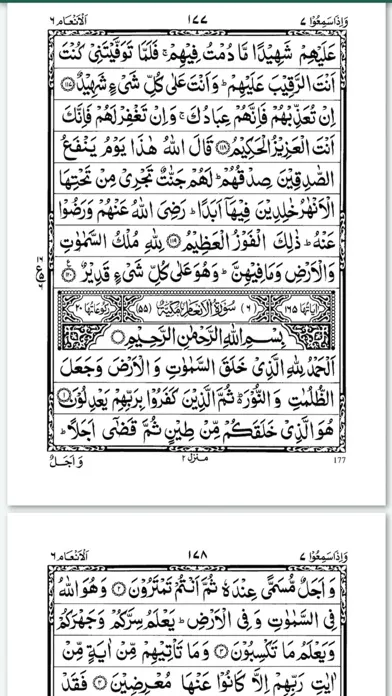 وَاِذَا سَمِعُوْا ٧ ١٧٧ اَلْاَنْعَام ٦
عَلَيْهِمْ شَهِيْدًا مَّا دُمْتُ فِيْهِمْ ۚ فَلَمَّا تَوَفَّيْتَنِيْ كُنْتَ
اَنْتَ الرَّقِيْبَ عَلَيْهِمْ ؕ وَاَنْتَ عَلٰى كُلِّ شَيْءٍ شَهِيْدٌ ۝١١٧
اِنْ تُعَذِّبْهُمْ فَاِنَّهُمْ عِبَادُكَ ۚ وَاِنْ تَغْفِرْ لَهُمْ فَاِنَّكَ
اَنْتَ الْعَزِيْزُ الْحَكِيْمُ ۝١١٨ قَالَ اللّٰهُ هٰذَا يَوْمُ يَنْفَعُ
الصّٰدِقِيْنَ صِدْقُهُمْ ؕ لَهُمْ جَنّٰتٌ تَجْرِيْ مِنْ تَحْتِهَا
الْاَنْهٰرُ خٰلِدِيْنَ فِيْهَاۤ اَبَدًا ؕ رَضِيَ اللّٰهُ عَنْهُمْ وَرَضُوْا
عَنْهُ ؕ ذٰلِكَ الْفَوْزُ الْعَظِيْمُ ۝١١٩ لِلّٰهِ مُلْكُ السَّمٰوٰتِ
وَالْاَرْضِ وَمَا فِيْهِنَّ ؕ وَهُوَ عَلٰى كُلِّ شَيْءٍ قَدِيْرٌ ۝١٢٠
اٰيَاتُهَا ١٦٥ (٦) سُوْرَةُ الْاَنْعَامِ مَكِّيَّةٌ (٥٥) رُكُوْعَاتُهَا ٢٠
بِسْمِ اللّٰهِ الرَّحْمٰنِ الرَّحِيْمِ
اَلْحَمْدُ لِلّٰهِ الَّذِيْ خَلَقَ السَّمٰوٰتِ وَالْاَرْضَ وَجَعَلَ
الظُّلُمٰتِ وَالنُّوْرَ ؕ ثُمَّ الَّذِيْنَ كَفَرُوْا بِرَبِّهِمْ يَعْدِلُوْنَ ۝١
هُوَ الَّذِيْ خَلَقَكُمْ مِّنْ طِيْنٍ ثُمَّ قَضٰۤى اَجَلًا ؕ
وَاَجَلٌ منزل ٢ 177
وَاِذَا سَمِعُوْا ٧ ١٧٨ اَلْاَنْعَام ٦
وَاَجَلٌ مُّسَمًّى عِنْدَهٗ ثُمَّ اَنْتُمْ تَمْتَرُوْنَ ۝٢ وَهُوَ اللّٰهُ
فِي السَّمٰوٰتِ وَفِي الْاَرْضِ ؕ يَعْلَمُ سِرَّكُمْ وَجَهْرَكُمْ
وَيَعْلَمُ مَا تَكْسِبُوْنَ ۝٣ وَمَا تَاْتِيْهِمْ مِّنْ اٰيَةٍ مِّنْ
اٰيٰتِ رَبِّهِمْ اِلَّا كَانُوْا عَنْهَا مُعْرِضِيْنَ ۝٤ فَقَدْ